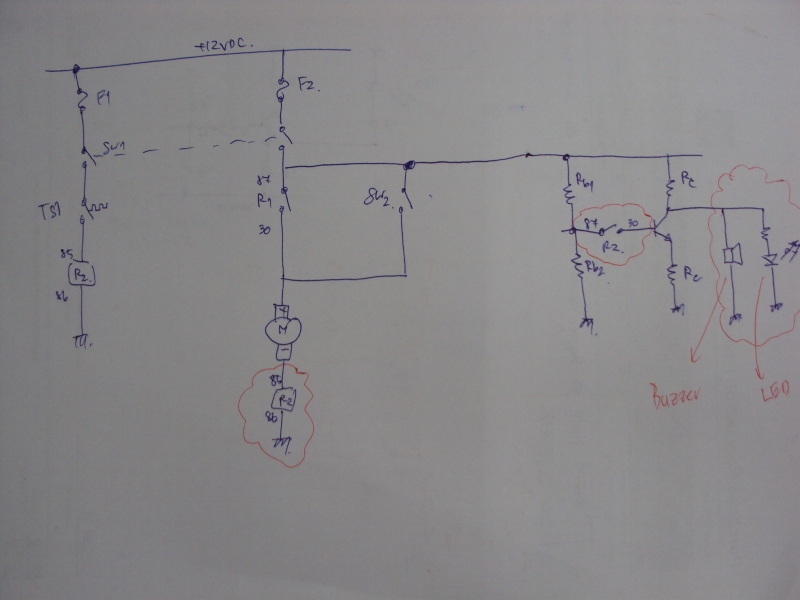 +12VDC.
F1
F2.
SW1
TS1
85
R2.
86
87
R1
30
SW2.
M
85
R2
86
Rb1
87
30
R2
Rb2
Rc
Re
Buzzer
LED